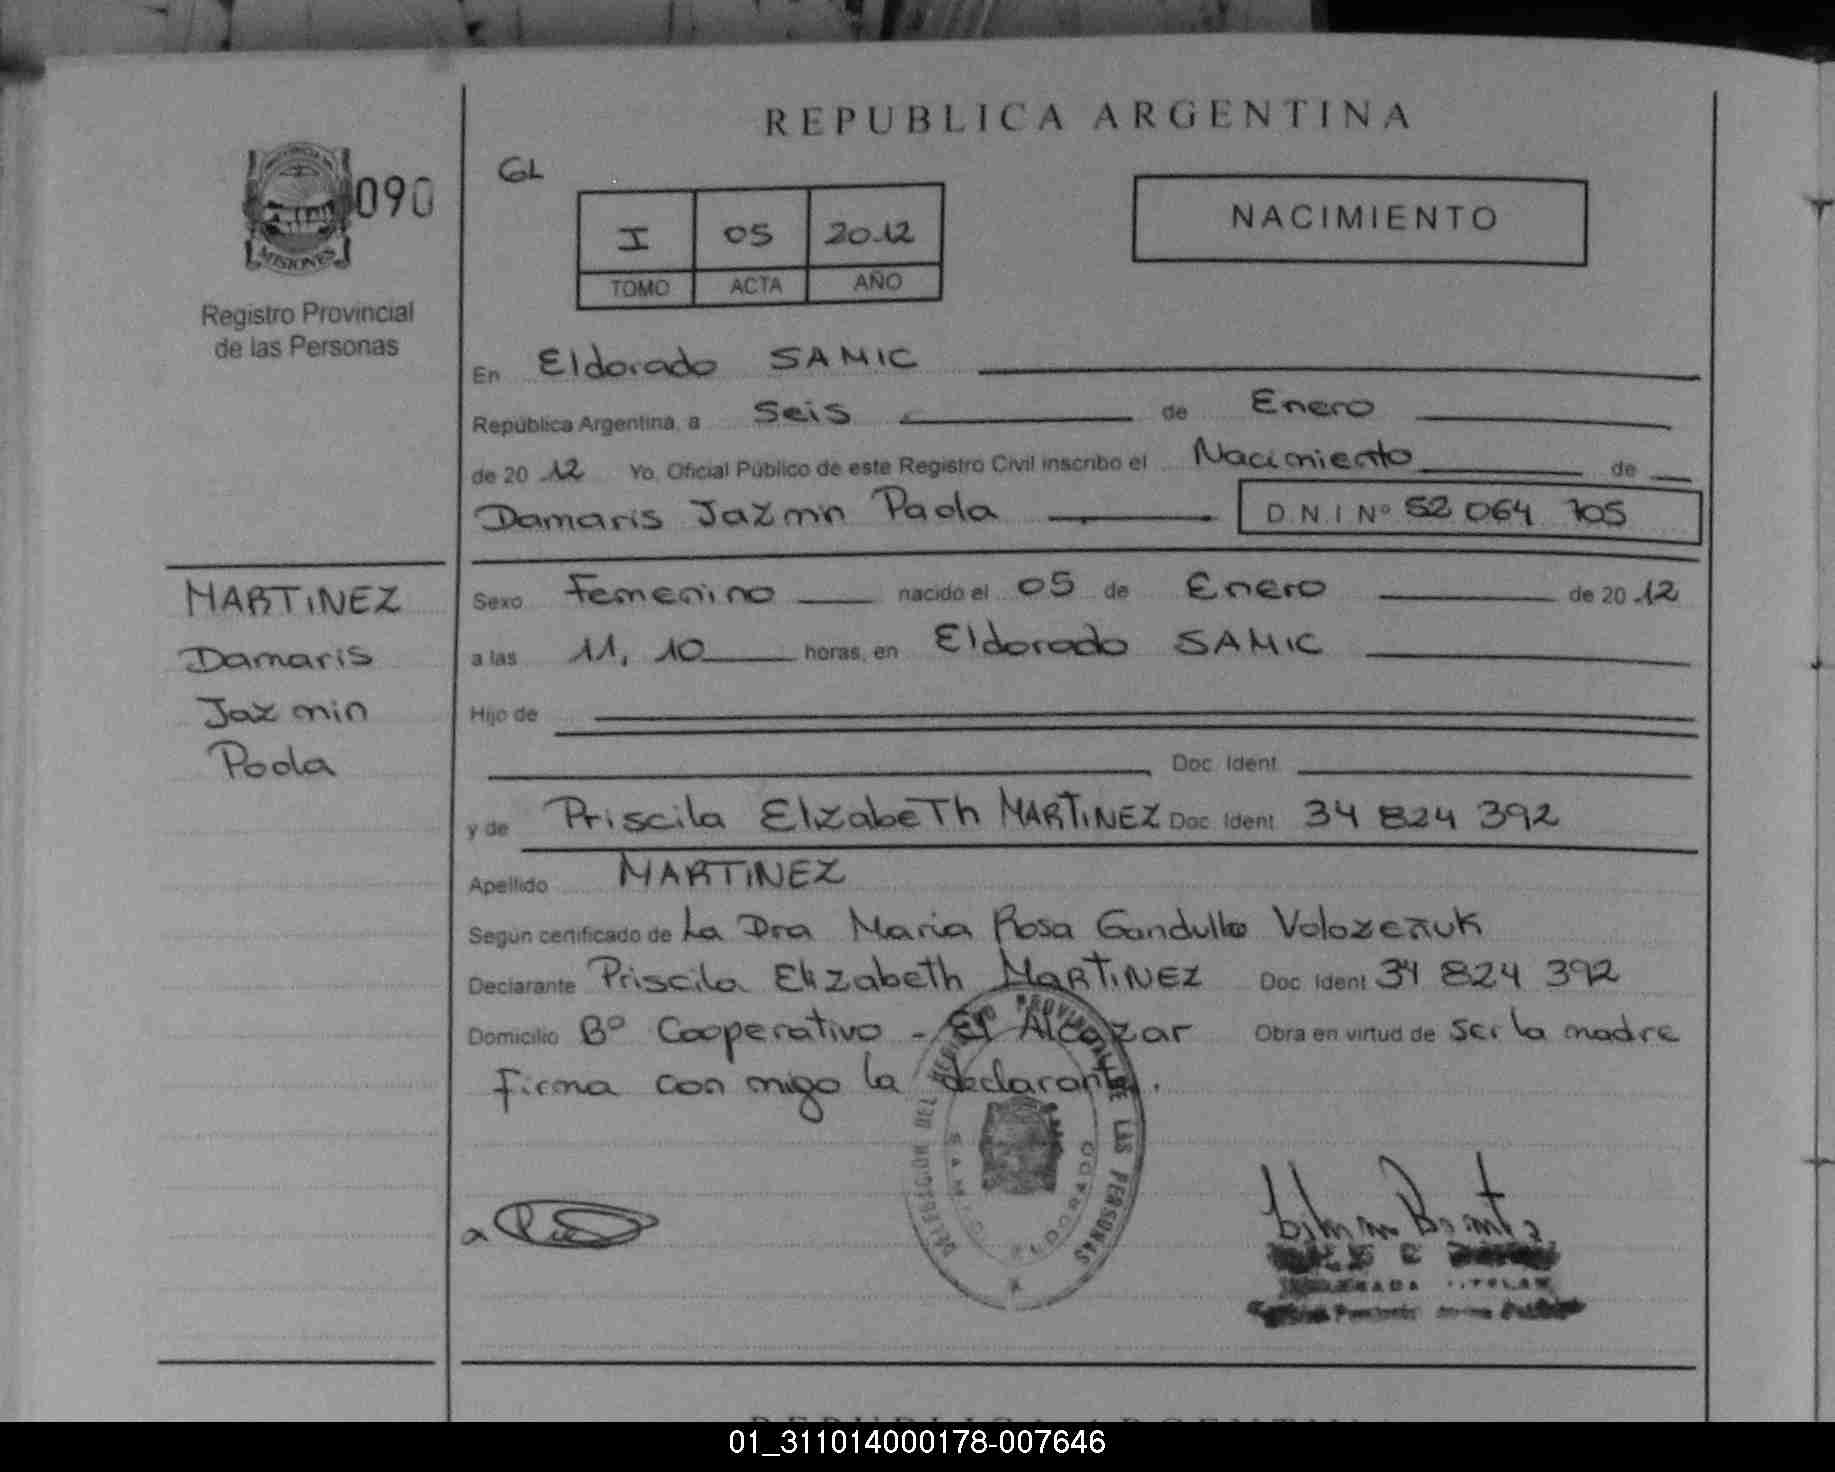 REPUBLICA ARGENTINA
090
MISIONES
Registro Provincial
de las Personas
GL
I 05 2012
TOMO ACTA AÑO
NACIMIENTO
En Eldorado SAMIC
República Argentina, a Seis de Enero
de 20 12 Yo, Oficial Público de este Registro Civil inscribo el Nacimiento de
Damaris Jazmin Paola D.N.I Nº 52 064 705
MARTINEZ
Damaris
Jazmin
Paola
Sexo Femenino nacido el 05 de Enero de 20 12
a las 11,10 horas, en Eldorado SAMIC
Hijo de
Doc. Ident.
y de Priscila Elizabeth MARTINEZ Doc. Ident. 34 824 392
Apellido MARTINEZ
Según certificado de La Dra Maria Rosa Gandullo
Declarante Priscila Elizabeth MARTINEZ Doc. Ident 34 824 392
Domicilio Bº Cooperativo - El Alcazar Obra en virtud de ser la madre
firma con migo la declarante.
DELEGACION DEL REGISTRO PROVINCIAL DE LAS PERSONAS
S.A.M.I.C. ELDORADO
REPUBLICA ARGENTINA
01_311014000178-007646